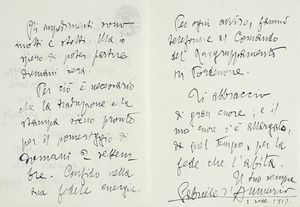 Gli impedimenti sono
molti e stolti. Ma io
spero di poter partire
domani sera.
Per ciò è necessario
che la traduzione e la
stampa sieno pronte
per il pomeriggio di
domani 2 settem-
bre. Confido nella
tua fedele energia.
Per ogni avviso, fammi
telefonare al Comando
del Raggruppamento
in Pordenone.
Ti abbraccio
di gran cuore; e il
mio cuore s'è allargato,
da quel tempo, per la
fede che l'abita.
Il tuo sempre
Gabriele d'Annunzio
1 sett. 1917.